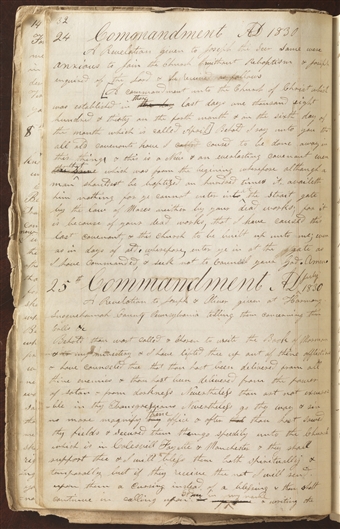 32
24 Commandment AD 1830
A Revelation given to Joseph the Seer some were
anxious to join the Church without Rebaptism & Joseph
enquired of the Lord & he received as follows
A commandment unto the Church of Christ which
was established in these last days one thousand eight
hundred & thirty on the forth month & on the sixth day of
the month which is called April Behold I say unto you that
all old covenants have I caused to be done away in
this thing & this is a new & an everlasting covenant even
that which was from the begining wherefore although a
man shouldest be baptized an hundred times it availeth
him nothing for ye cannot enter into the straight gate
by the Law of Moses neither by your dead works for it
is because of your dead works that I have caused this
last covenant & this Church to be built up unto me even
as in days of old wherefore enter ye in at the gate as
I have commanded & seek not to Council your God Amen
25th Commandment AD July 1830
A Revelation to Joseph & Oliver given at Harmony
Susquehannah County Pennsylvania telling them concerning their
Calls &c
Behold thou wast called & chosen to write the Book of Mormon
& to my ministery & I have lifted thee up out of thy affliction
& have counseled thee that thou hast been delivered from all
thine enemies & thou hast been delivered from the power
of satan & from darkness Nevertheless thou art not excus-
able in thy transgressions Nevertheless go thy way & sin
no more magnify thine office & after thou hast sowed
thy fields & secured them then go speedily unto the Church
which is in Colesvill Fayette & Manchester & they shall
support thee & I will bless them both spiritually &
temporally but if they receive thee not I will send
upon them a cursing instead of a blessing & thou shalt
continue in calling upon God in my name & writing the